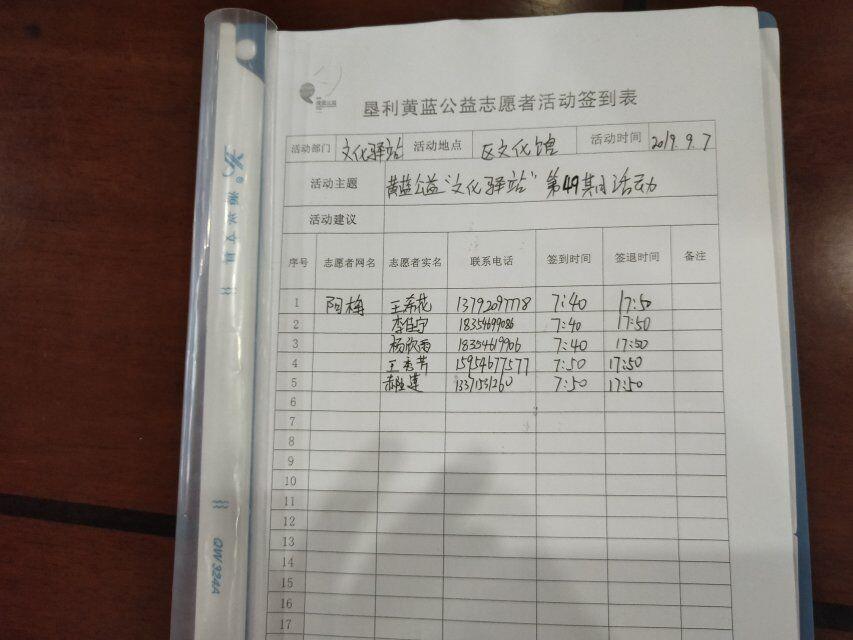 垦利黄蓝公益志愿者活动签到表
活动部门 文化驿站 活动地点 区文化馆 活动时间 2019.9.7
活动主题 黄蓝公益"文化驿站"第49期活动
活动建议
序号 志愿者网名 志愿者实名 联系电话 签到时间 签退时间 备注
1 阿梅 王希花 13792097778 7:40 17:50
2 李佳宁 18354699086 7:40 17:50
3 杨欣雨 18354619906 7:40 17:50
4 王秀芳 15954677577 7:50 17:50
5 13371531260 7:50 17:50
6
7
8
9
10
11
12
13
14
15
16
17
湘兴文具
QW324A